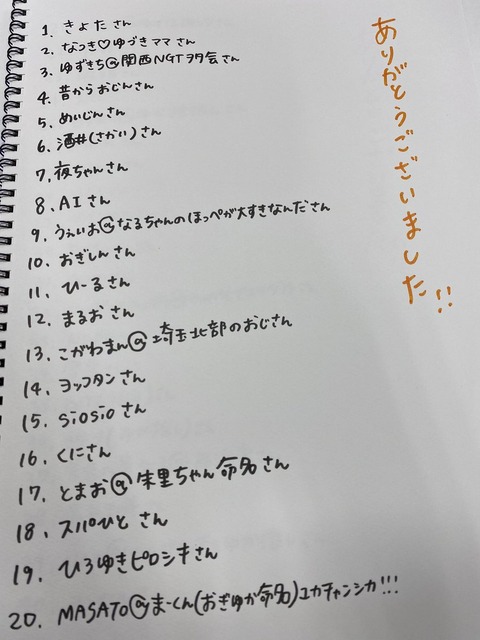 1. きよたさん
2. なつき♡ゆづきママさん
3. ゆずきち@関西NGTヲタ会さん
4. 昔からおじんさん
5. めいじんさん
6. 酒井(さかい)さん
7. 夜ちゃんさん
8. AIさん
9. うぇいお@なるちゃんのほっぺが大すきなんださん
10. おぎしんさん
11. ひーるさん
12. まるおさん
13. こがわまん@埼玉北部のおじさん
14. ヨッフタンさん
15. siosioさん
16. くにさん
17. とまお@朱里ちゃん命名さん
18. スパひとさん
19. ひろゆきピロシキさん
20. MASATO@まーくん(おぎゆか命名)ユカチャンシカ!!!
ありがとうございました!!